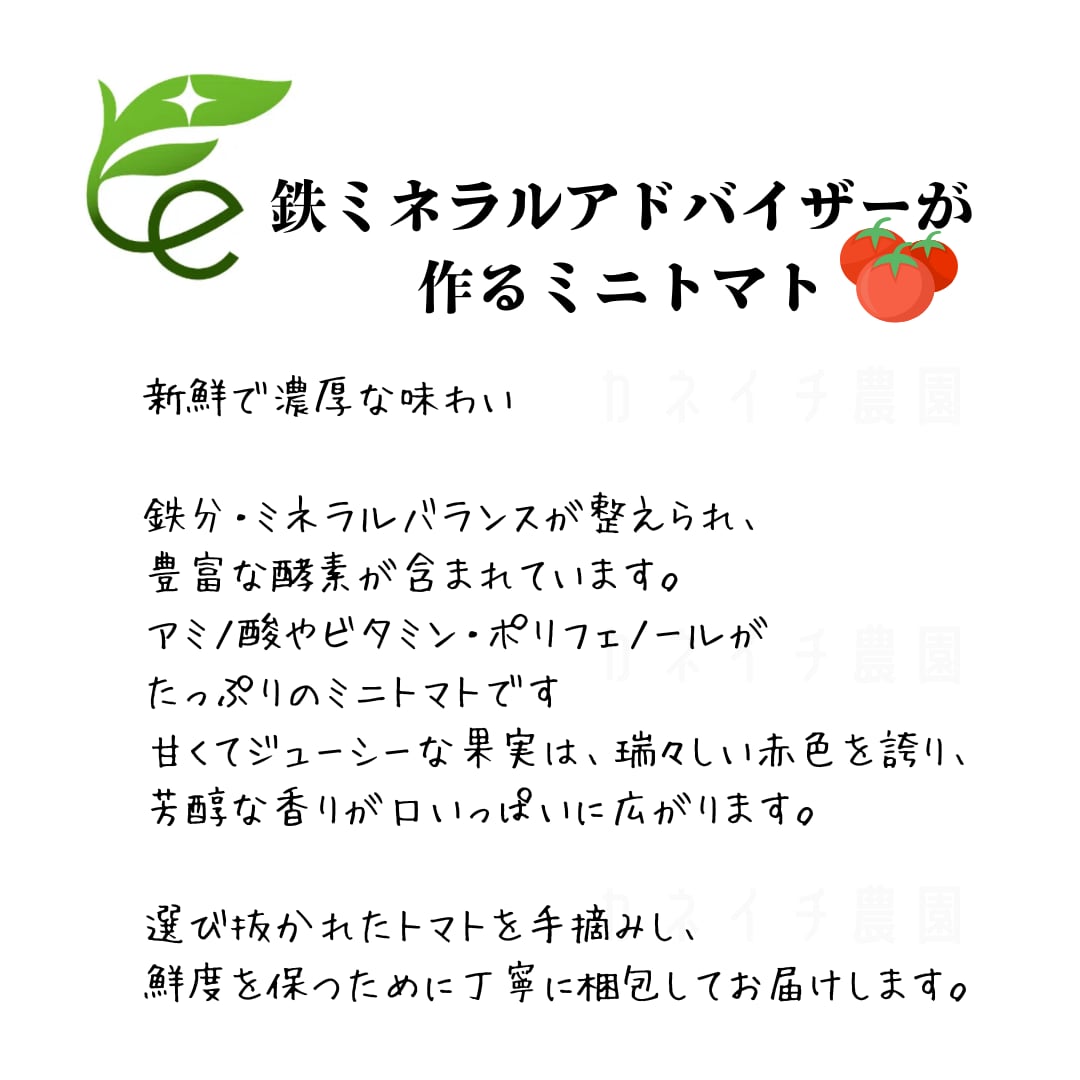 鉄ミネラルアドバイザーが
作るミニトマト
新鮮で濃厚な味わい
カネイチ農園
鉄分・ミネラルバランスが整えられ、
豊富な酵素が含まれています。
アミノ酸やビタミン・ポリフェノールが
カネイチ農園
たっぷりのミニトマトです
甘くてジューシーな果実は、瑞々しい赤色を誇り、
芳醇な香りが口いっぱいに広がります。
選び抜かれたトマトを手摘みし、
カネイチ農園
鮮度を保つために丁寧に梱包してお届けします。